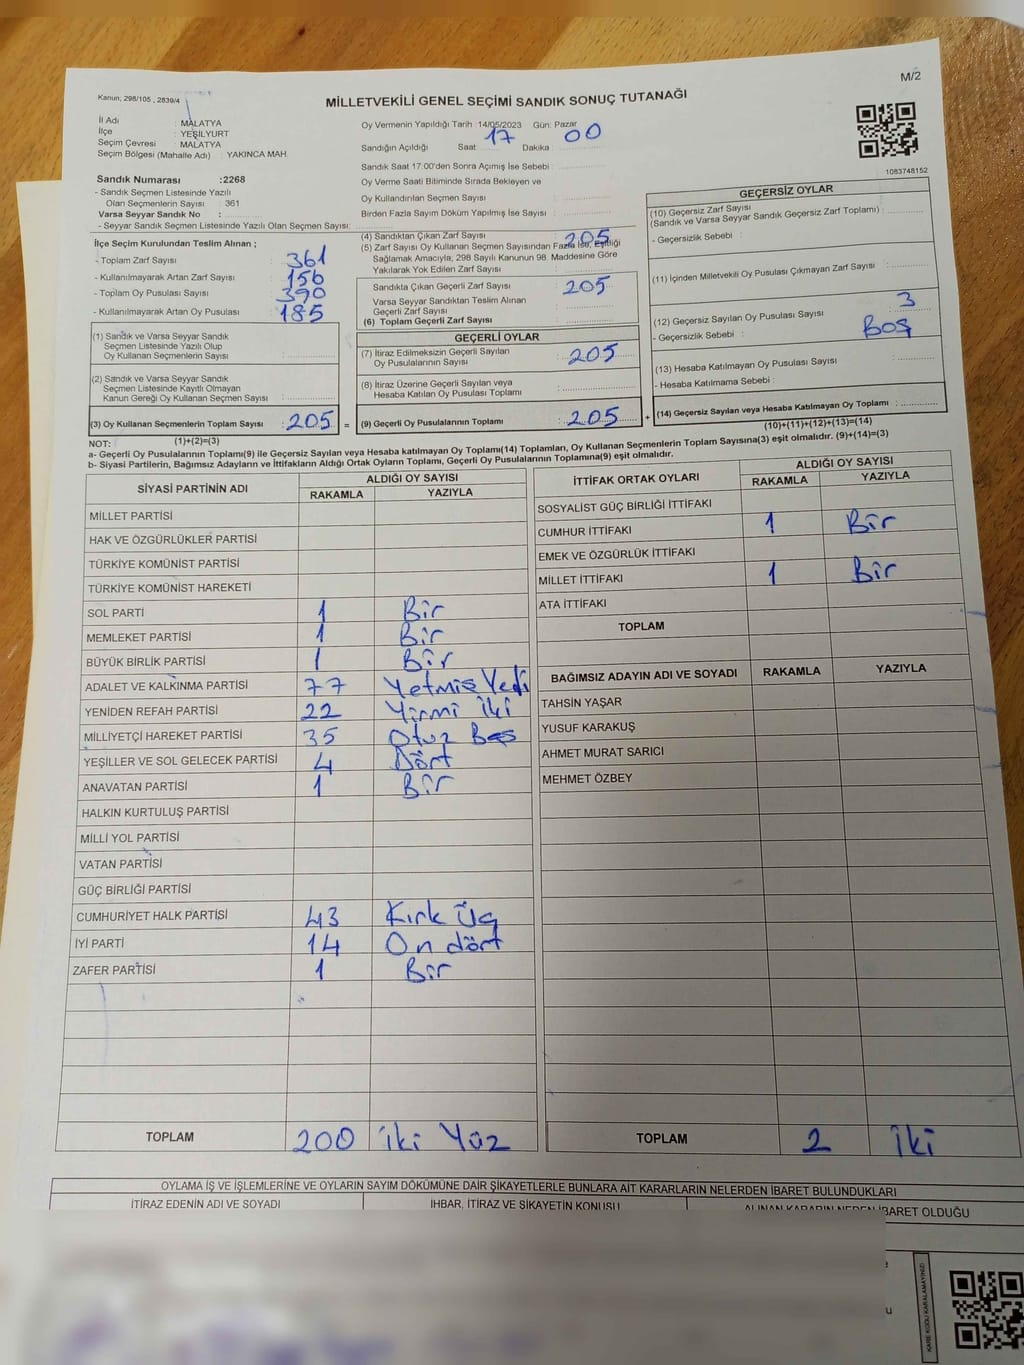 M/2
Kanun; 298/105 , 2839/4
MİLLETVEKİLİ GENEL SEÇİMİ SANDIK SONUÇ TUTANAĞI
İl Adı : MALATYA
İlçe : YEŞİLYURT
Seçim Çevresi : MALATYA
Seçim Bölgesi (Mahalle Adı) : YAKINCA MAH.
Sandık Numarası :2268
- Sandık Seçmen Listesinde Yazılı
Olan Seçmenlerin Sayısı : 361
Varsa Seyyar Sandık No :
- Seyyar Sandık Seçmen Listesinde Yazılı Olan Seçmen Sayısı:
İlçe Seçim Kurulundan Teslim Alınan ;
- Toplam Zarf Sayısı : 361
- Kullanılmayarak Artan Zarf Sayısı : 156
- Toplam Oy Pusulası Sayısı : 390
- Kullanılmayarak Artan Oy Pusulası : 185
(1) Sandık ve Varsa Seyyar Sandık
Seçmen Listesinde Yazılı Olup
Oy Kullanan Seçmenlerin Sayısı :
(2) Sandık ve Varsa Seyyar Sandık
Seçmen Listesinde Kayıtlı Olmayan
Kanun Gereği Oy Kullanan Seçmen Sayısı :
(3) Oy Kullanan Seçmenlerin Toplam Sayısı : 205 =
(1)+(2)=(3)
Oy Vermenin Yapıldığı Tarih : 14/05/2023 Gün: Pazar
Sandığın Açıldığı Saat : 17 Dakika : 00
Sandık Saat 17:00'den Sonra Açımış İse Sebebi :
Oy Verme Saati Bitiminde Sırada Bekleyen ve
Oy Kullandırılan Seçmen Sayısı :
Birden Fazla Sayım Döküm Yapılmış İse Sayısı :
(4) Sandıktan Çıkan Zarf Sayısı : 205
(5) Zarf Sayısı Oy Kullanan Seçmen Sayısından Fazla İse, Eşitliği
Sağlamak Amacıyla, 298 Sayılı Kanunun 98. Maddesine Göre
Yakılarak Yok Edilen Zarf Sayısı :
Sandıkta Çıkan Geçerli Zarf Sayısı : 205
Varsa Seyyar Sandıktan Teslim Alınan
Geçerli Zarf Sayısı :
(6) Toplam Geçerli Zarf Sayısı :
GEÇERLİ OYLAR
(7) İtiraz Edilmeksizin Geçerli Sayılan
Oy Pusulalarının Sayısı : 205
(8) İtiraz Üzerine Geçerli Sayılan veya
Hesaba Katılan Oy Pusulası Toplamı :
(9) Geçerli Oy Pusulalarının Toplamı : 205 +
1083748152
GEÇERSİZ OYLAR
(10) Geçersiz Zarf Sayısı
(Sandık ve Varsa Seyyar Sandık Geçersiz Zarf Toplamı) :
- Geçersizlik Sebebi :
(11) İçinden Milletvekili Oy Pusulası Çıkmayan Zarf Sayısı :
(12) Geçersiz Sayılan Oy Pusulası Sayısı : 3
- Geçersizlik Sebebi : Boş
(13) Hesaba Katılmayan Oy Pusulası Sayısı :
- Hesaba Katılmama Sebebi :
(14) Geçersiz Sayılan veya Hesaba Katılmayan Oy Toplamı :
(10)+(11)+(12)+(13)=(14)
NOT:
a- Geçerli Oy Pusulalarının Toplamı(9) ile Geçersiz Sayılan veya Hesaba katılmayan Oy Toplamı(14) Toplamları, Oy Kullanan Seçmenlerin Toplam Sayısına(3) eşit olmalıdır. (9)+(14)=(3)
b- Siyasi Partilerin, Bağımsız Adayların ve İttifakların Aldığı Ortak Oyların Toplamı, Geçerli Oy Pusulalarının Toplamına(9) eşit olmalıdır.
SİYASİ PARTİNİN ADI ALDIĞI OY SAYISI
RAKAMLA YAZIYLA
MİLLET PARTİSİ
HAK VE ÖZGÜRLÜKLER PARTİSİ
TÜRKİYE KOMÜNİST PARTİSİ
TÜRKİYE KOMÜNİST HAREKETİ
SOL PARTİ 1 Bir
MEMLEKET PARTİSİ 1 Bir
BÜYÜK BİRLİK PARTİSİ 1 Bir
ADALET VE KALKINMA PARTİSİ 77 Yetmiş Yedi
YENİDEN REFAH PARTİSİ 22 Yirmi İki
MİLLİYETÇİ HAREKET PARTİSİ 35 Otuz Beş
YEŞİLLER VE SOL GELECEK PARTİSİ 4 Dört
ANAVATAN PARTİSİ 1 Bir
HALKIN KURTULUŞ PARTİSİ
MİLLİ YOL PARTİSİ
VATAN PARTİSİ
GÜÇ BİRLİĞİ PARTİSİ
CUMHURİYET HALK PARTİSİ 43 Kırk Üç
İYİ PARTİ 14 On dört
ZAFER PARTİSİ 1 Bir
TOPLAM 200 iki Yüz
İTTİFAK ORTAK OYLARI ALDIĞI OY SAYISI
RAKAMLA YAZIYLA
SOSYALİST GÜÇ BİRLİĞİ İTTİFAKI
CUMHUR İTTİFAKI 1 Bir
EMEK VE ÖZGÜRLÜK İTTİFAKI
MİLLET İTTİFAKI 1 Bir
ATA İTTİFAKI
TOPLAM
BAĞIMSIZ ADAYIN ADI VE SOYADI RAKAMLA YAZIYLA
TAHSİN YAŞAR
YUSUF KARAKUŞ
AHMET MURAT SARICI
MEHMET ÖZBEY
TOPLAM 2 iki
OYLAMA İŞ VE İŞLEMLERİNE VE OYLARIN SAYIM DÖKÜMÜNE DAİR ŞİKAYETLERLE BUNLARA AİT KARARLARIN NELERDEN İBARET BULUNDUKLARI
İTİRAZ EDENİN ADI VE SOYADI İHBAR, İTİRAZ VE ŞİKAYETİN KONUSU ALINAN KARARIN NEDEN İBARET OLDUĞU
KARE KODU KARALAMAYINIZ!